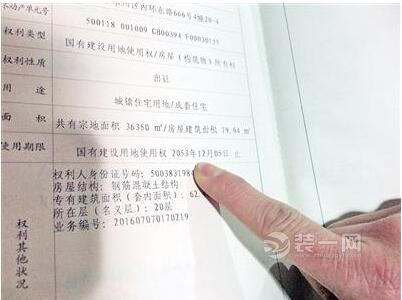 不动产单元号
川区内环东路666号4幢20-4
500118 001009 GB00394 F00030155
权利类型
国有建设用地使用权/房屋(构筑物)所有权
权利性质
出让
用 途
城镇住宅用地/成套住宅
面 积
共有宗地面积 36350 ㎡/房屋建筑面积 79.04 ㎡
使用期限
国有建设用地使用权 2053年12月05日 止
权利其他状况
权利人身份证号码: 5003831984
房屋结构: 钢筋混凝土结构
专有建筑面积(套内面积): 62.
所在层(名义层): 20层
业务编号: 201607070170219
装一网